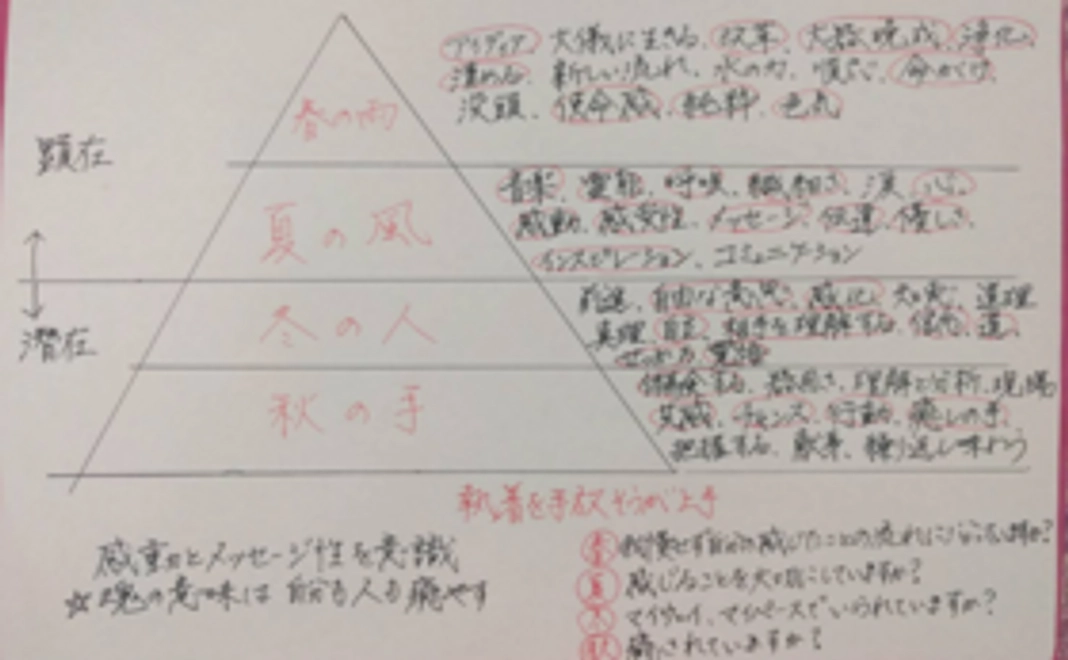 アイディア、大儀に生きる、改革、大器晩成、浄化、
清める、新しい流れ、水の力、命がけ、
没頭、使命感、純粋、色気
春の雨
顕在
音楽、霊能、呼吸、繊細さ、涙、心、
感動、感受性、メッセージ、伝達、優しさ、
インスピレーション、コミュニケーション
夏の風
前進、自由な意思、感化、道理
真理、自立、相手を理解する、信念、道、
冬の人
潜在
器用さ、理解と分析、現場
共感、チャンス、行動、癒しの手、
把握する、繰り返し味わう
秋の手
執着を手放すほうが上手
感動とメッセージ性を意識
☆魂の意味は自分も人も癒やす
春 我慢せず自分の感じたことの流れに
夏 感じることを大切にしていますか?
冬 マイウェイ、マイペースでいられていますか?
秋 癒されていますか?